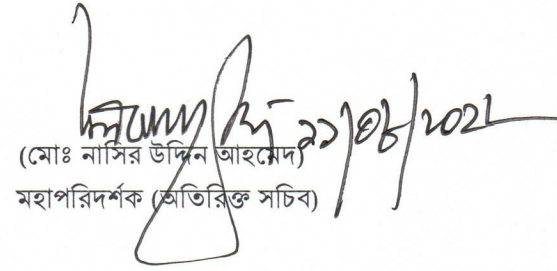 ২১/০৮/২০২২
(মোঃ নাসির উদ্দিন আহমেদ)
মহাপরিদর্শক (অতিরিক্ত সচিব)